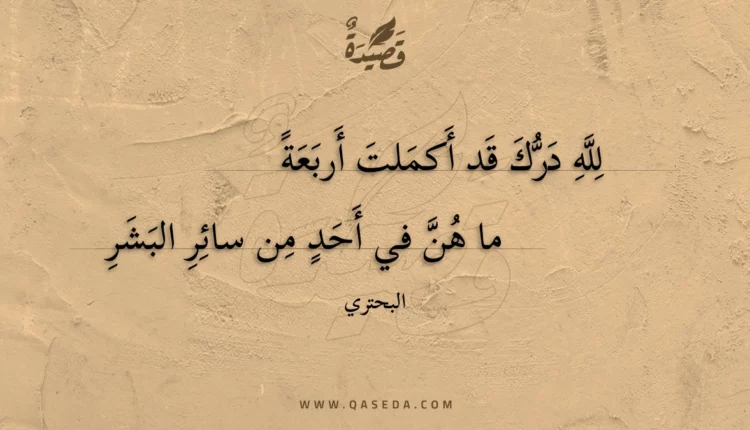 قَصِيدَةٌ
لِلَّهِ دَرُّكَ قَد أَكمَلتَ أَربَعَةً
ما هُنَّ في أَحَدٍ مِن سائِرِ البَشَرِ
البحتري
WWW.QASEDA.COM